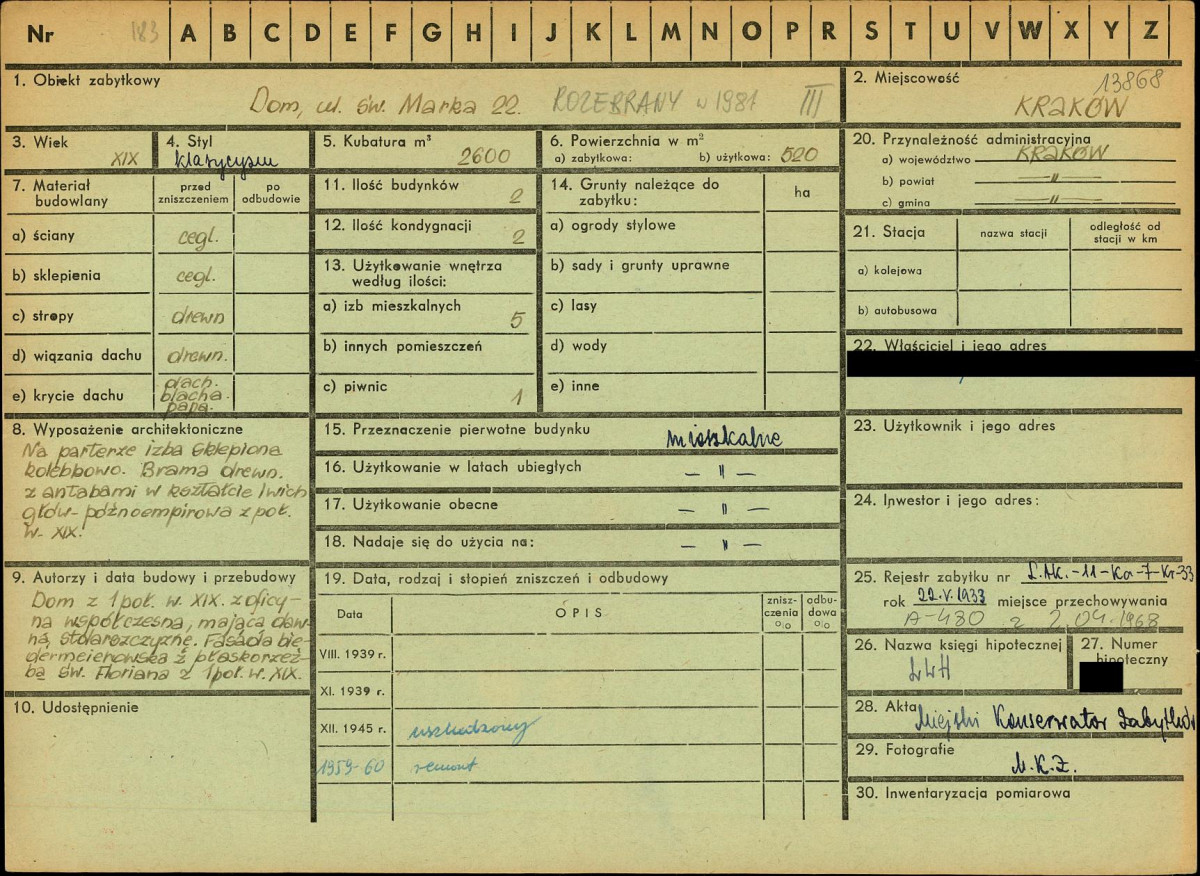 Nr 183 A B C D E F G H I J K L M N O P R S T U V W X Y Z
1. Obiekt zabytkowy
Dom, ul. św. Marka 22. ROZEBRANY w 1981 III
2. Miejscowość 13868
KRAKÓW
3. Wiek
XIX
4. Styl
klasycyzm
5. Kubatura m³
2600
6. Powierzchnia w m²
a) zabytkowa: b) użytkowa: 520
20. Przynależność administracyjna
a) województwo KRAKÓW
b) powiat —〃—
c) gmina —〃—
7. Materiał budowlany
przed zniszczeniem
po odbudowie
a) ściany cegl.
b) sklepienia cegl.
c) stropy drewn
d) wiązania dachu drewn.
e) krycie dachu
dach.
blacha
papa.
11. Ilość budynków 2
12. Ilość kondygnacji 2
13. Użytkowanie wnętrza
według ilości:
a) izb mieszkalnych 5
b) innych pomieszczeń
c) piwnic 1
14. Grunty należące do
zabytku:
ha
a) ogrody stylowe
b) sady i grunty uprawne
c) lasy
d) wody
e) inne
21. Stacja
nazwa stacji
odległość od
stacji w km
a) kolejowa
b) autobusowa
22. Właściciel i jego adres
8. Wyposażenie architektoniczne
Na parterze izba sklepiona
kolebkowo. Brama drewn.
z antabami w kształcie lwich
głów- późnoempirowa z poł.
w. XIX.
15. Przeznaczenie pierwotne budynku mieszkalne
16. Użytkowanie w latach ubiegłych — 〃 —
17. Użytkowanie obecne — 〃 —
18. Nadaje się do użycia na: — 〃 —
23. Użytkownik i jego adres
24. Inwestor i jego adres:
9. Autorzy i data budowy i przebudowy
Dom z 1 poł. w. XIX. z oficy-
na współczesna, mająca daw-
ną, stolarszczyznę. Fasada bie-
dermeierowska z płaskorzeź-
bą św. Floriana z 1 poł. w. XIX.
10. Udostępnienie
19. Data, rodzaj i stopień zniszczeń i odbudowy
Data
OPIS
znisz-
czenia
%
odbu-
dowa
%
VIII. 1939 r.
XI. 1939 r.
XII. 1945 r. uszkodzony
1959-60 remont
25. Rejestr zabytku nr L.AK.-11-Ka-7-Kr-33
rok 22.V.1933 miejsce przechowywania
A-480 z 2.04.1968
26. Nazwa księgi hipotecznej
LWH
27. Numer
hipoteczny
28. Akta Miejski Konserwator Zabytków
29. Fotografie
M.K.Z.
30. Inwentaryzacja pomiarowa